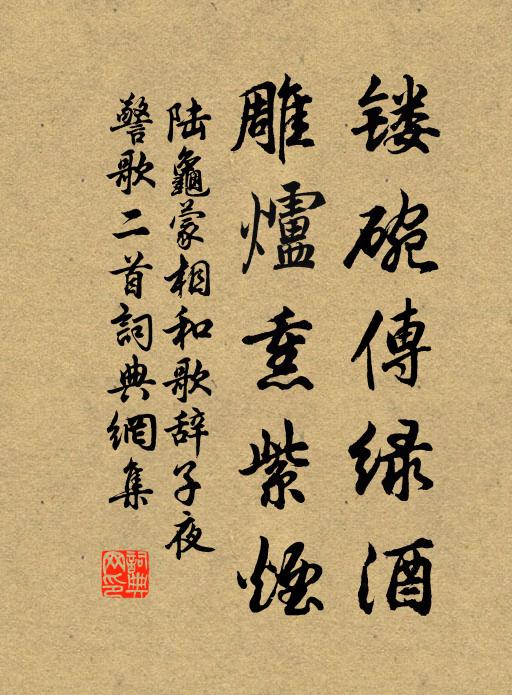 镂碗傳緑酒
雕爐熏紫煙
陆龜蒙相和歌辞子夜
警歌二首詞典網集
詞典
网印